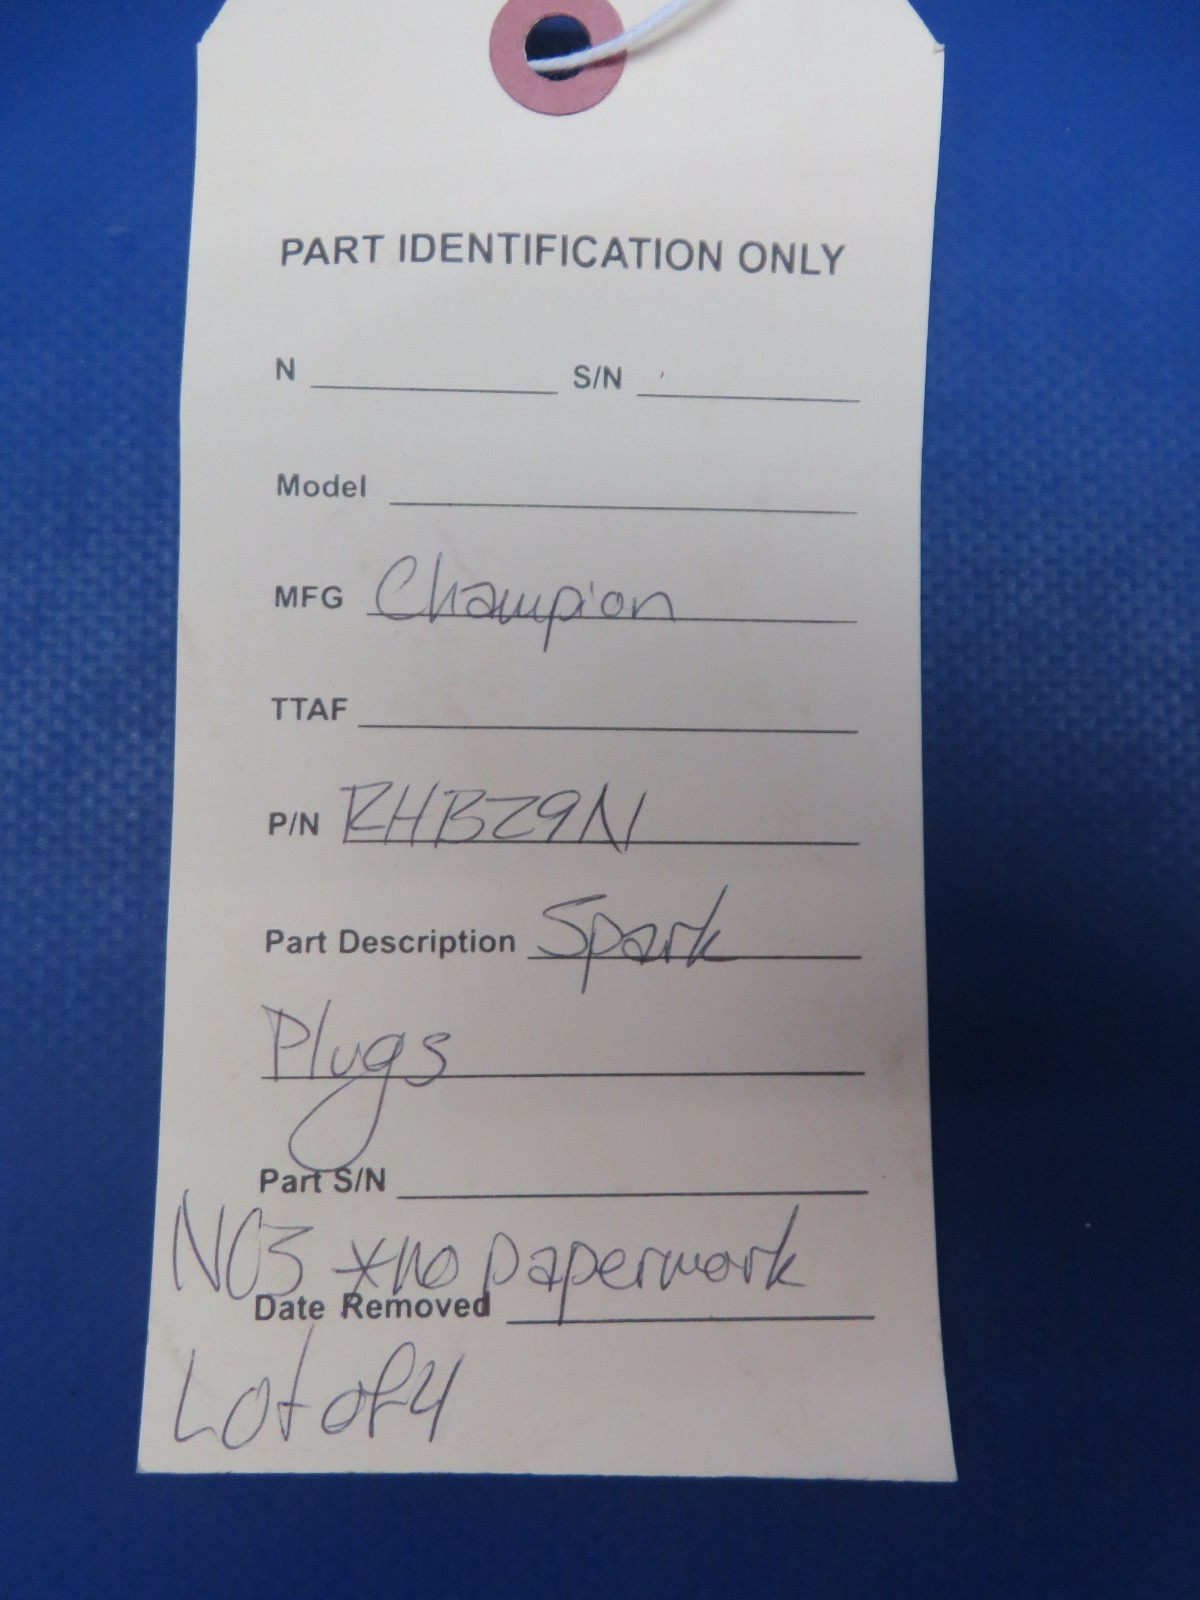 PART IDENTIFICATION ONLY
N S/N
Model
MFG Champion
TTAF
P/N RHB29N
Part Description Spark
Plugs
Part S/N
NOS *no paperwork
Date Removed
Lot of 4